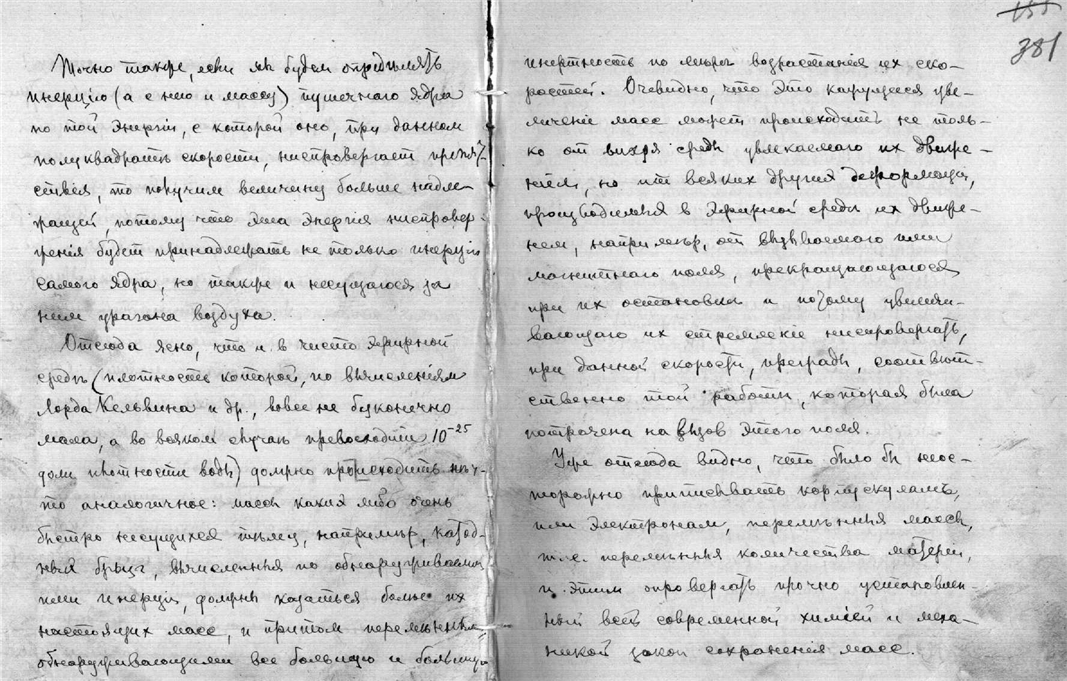 155
381
Точно также, если мы будем опредѣлять
инерцію (а с нею и массу) пушечного ядра
по той энергіи, с которой оно, при данном
полуквадратѣ скорости, ниспровергает препят-
ствія, то получим величину больше надле-
жащей, потому что эта энергія ниспровер-
женія будет принадлежать не только инерціи
самого ядра, но также и несущагося за
ним урагана воздуха.
Отсюда ясно, что и в чисто эфирной
средѣ (плотность которой, по вычисленіям
Лорда Кельвина и др., вовсе не безконечно
мала, а во всяком случаѣ превосходит 10⁻²⁵
доли плотности воды) должно происходить нѣч-
то аналогичное: массы каких либо очень
быстро несущихся тѣл, например, катод-
ных брызг, вычисленныя по обнаруживаемой
ими инерціи, должны казаться больше их
настоящих масс, и притом перемѣнными,
обнаруживающими все большую и большую
инертность по мѣрѣ возрастанія их ско-
ростей. Очевидно, что это кажущееся уве-
личеніе масс может происходить не толь-
ко от вихря среды увлекаемаго их движе-
ніем, но и от всяких других деформацій,
производимых в эфирной средѣ их движе-
нем, напримѣр, от вызываемого ими
магнитнаго поля, прекращающагося
при их остановкѣ и потому увеличи-
вающаго их стремленіе ниспровергать,
при данной скорости, преграды, соотвѣт-
ственно той работѣ, которая была
потрачена на вызов этого поля.
Уже отсюда видно, что было бы неос-
торожно приписывать корпускулам,
или электронам, перемѣнныя массы,
т.е. перемѣнныя количества матеріи,
и этим опровергать прочно установлен-
ный всей современной химіей и меха-
никой закон сохраненія масс.